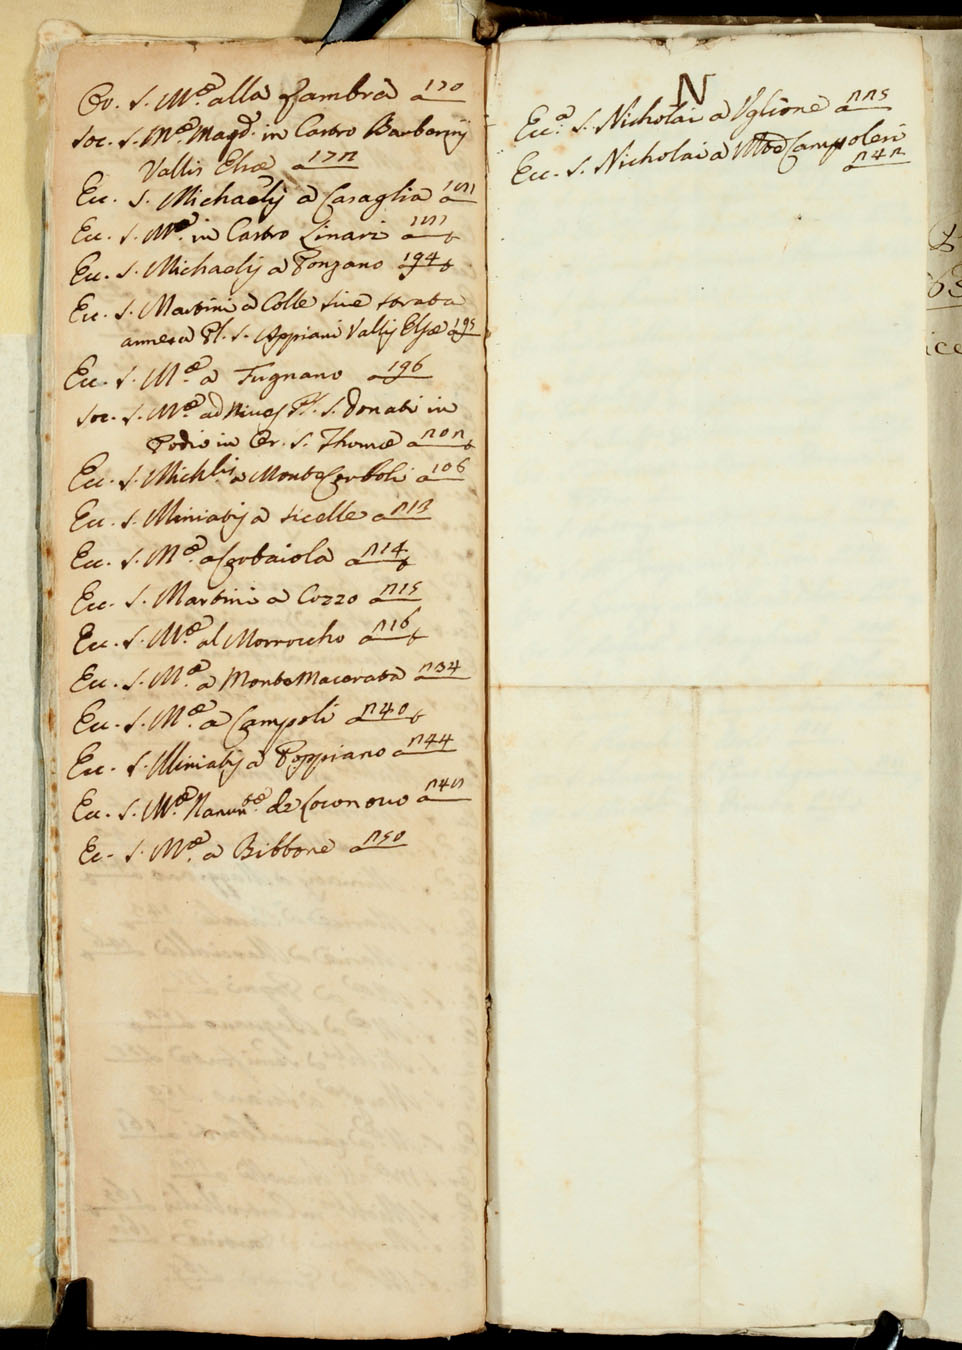 Or. S. M.ᵃ alla Zambra a 170
Soc. S. M.ᵃ Magd. in Castro Barberinij
Vallis Elsæ a 172
Ec. S. Michaelij a Casaglia a
Ec. S. M.ᵃ in Castro Linari a
Ec. S. Michaelij a Ponzano 194
Ec. S. Martini a Colle sive strata
annexa Pl. S. Appiani Vallij Elsæ 195
Ec. S. M.ᵃ a Fugnano 196
Soc. S. M.ᵃ ad Nives Pl. S. Donati in
Podio in Or. S. Thomæ a 202
Ec. S. Mich.lis a Monte Corboli a 106
Ec. S. Miniatij a Sicelle a 213
Ec. S. M.ᵃ a Corbaiola a 214
Ec. S. Martini a Cozzo a 215
Ec. S. M.ᵃ al Morroccho a 216
Ec. S. M.ᵃ a Monte Macerata a 234
Ec. S. M.ᵃ a Campoli a 240
Ec. S. Miniatij a Poppiano a 244
Ec. S. M.ᵃ de a
Ec. S. M.ᵃ a Bibbone a 250
N
Ec.ᵃ S. Nicholai a Uglione a 225
Ec. S. Nicholai a Campoleri
242